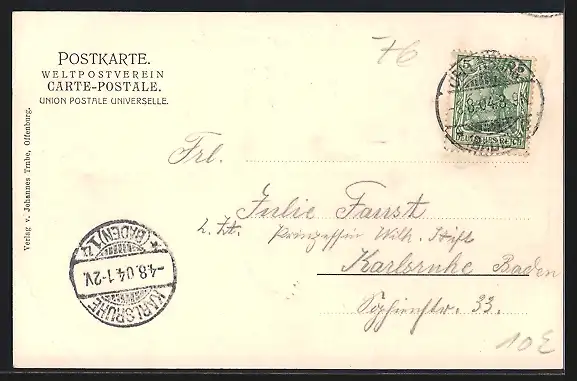 POSTKARTE.
WELTPOSTVEREIN
CARTE-POSTALE.
UNION POSTALE UNIVERSELLE.
Verlag v. Johannes Trube, Offenburg.
Frl.
Julie Faust
z. Zt. Prinzessin Wilh. Stift
Karlsruhe Baden
Sophienstr. 33.
KARLSRUHE
(BADEN) 1
-4.8.04.1-2V.
8.04.8-9N
DEUTSCHES REICH
10€